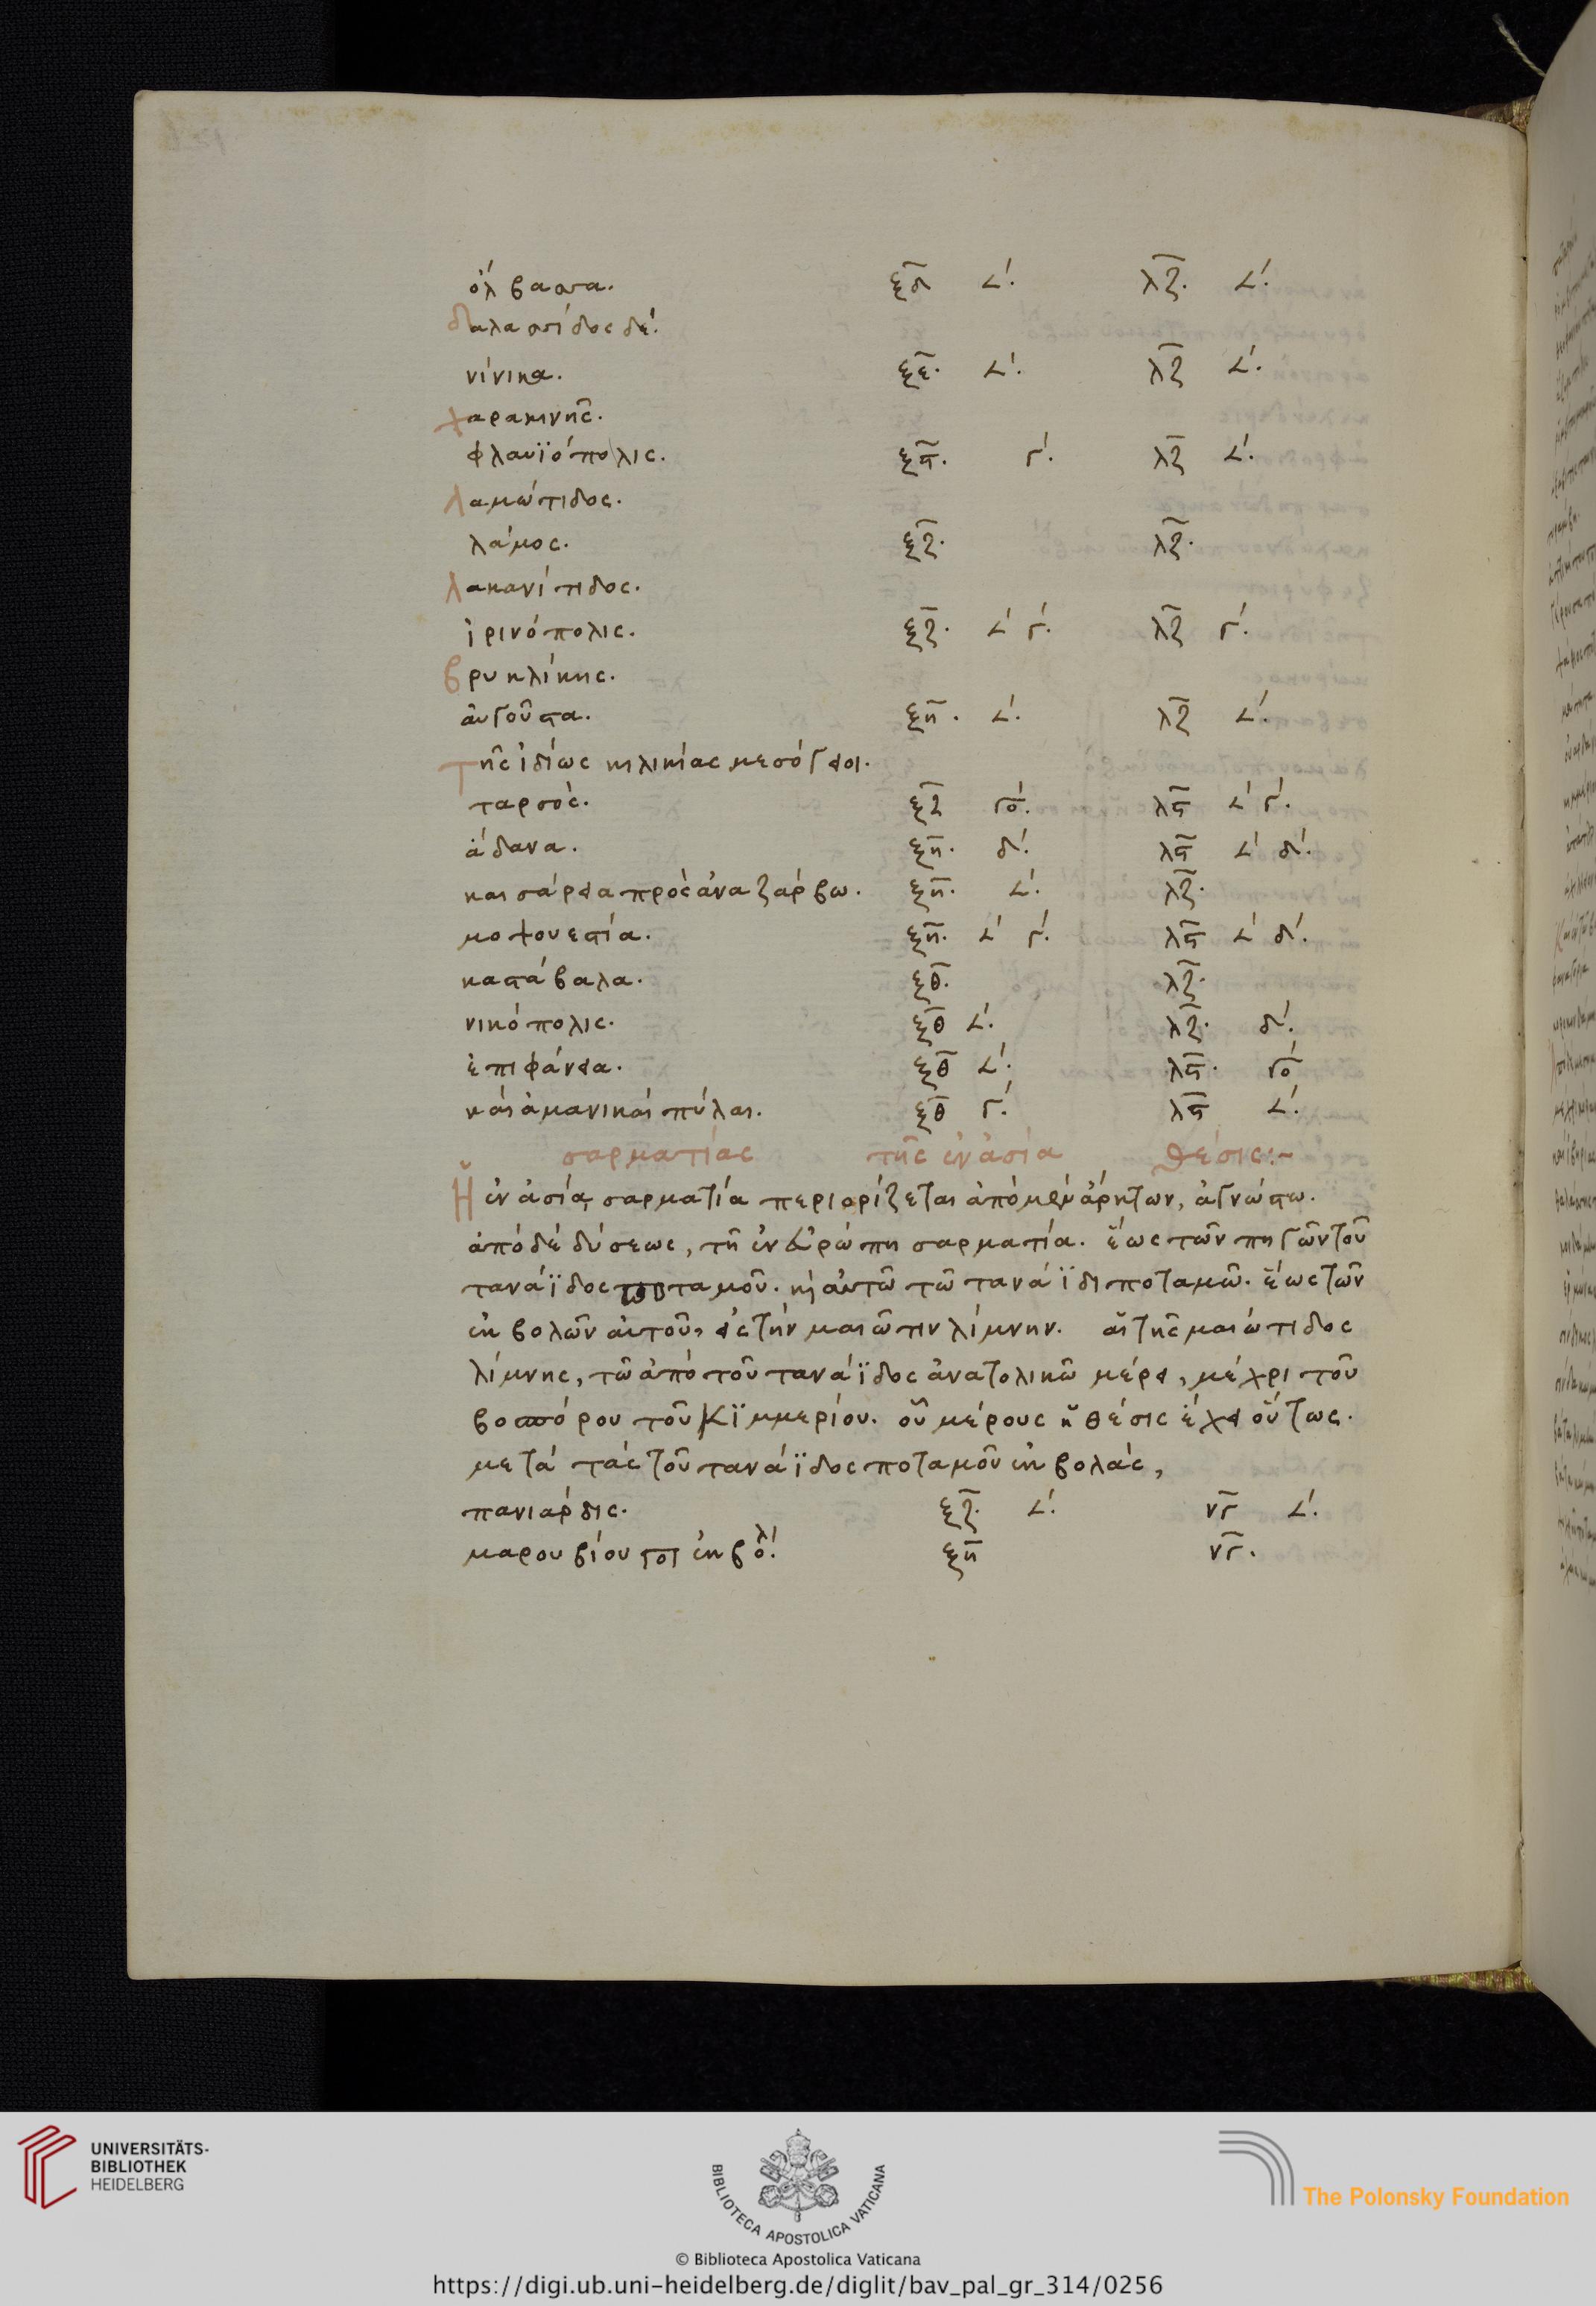 ὄλβασα. ξδ ∠΄. λζ. ∠΄.
δαλασίδος δέ.
νίνικα. ξε. ∠΄. λζ ∠΄.
χαρακινῆς.
φλαυϊόπολις. ξϛ. γ΄. λζ ∠΄.
λαμώτιδος.
λάμος. ξζ. λζ.
λακανίτιδος.
ἰρινόπολις. ξζ. ∠΄ γ΄. λζ γ΄.
βρυκλίκης.
αὐγοῦϛα. ξη. ∠΄. λζ ∠΄.
τῆς ἰδίως κιλικίας μεσόγειοι.
ταρσὸς. ξζ γο΄. λϛ ∠΄ γ΄.
ἄδανα. ξη. δ΄. λϛ ∠΄ δ΄.
καισάρεια πρὸς ἀναζάρβω. ξη. ∠΄. λζ.
μοψουεϛία. ξη. ∠΄ γ΄. λϛ ∠΄ δ΄.
καϛάβαλα. ξθ. λζ.
νικόπολις. ξθ ∠΄. λζ. δ΄.
ἐπιφάνεια. ξθ ∠΄. λϛ. γο΄
καὶ ἀμανικαὶ πύλαι. ξθ γ΄. λϛ ∠΄.
σαρματίας τῆς ἐν ἀσία θέσις:~
Ἡ ἐν ἀσία, σαρματία περιορίζεται ἀπὸ μὲν ἄρκτων, ἀγνώϛω.
ἀπὸ δὲ δύσεως, τῆ ἐν εὐρώπη σαρματία. ἕως τῶν πηγῶν τοῦ
τανάϊδος ποταμοῦ. καὶ αὐτῶ τῶ τανάϊδι ποταμῶ. ἕως τῶν
ἐκβολῶν αὐτοῦ, εἰς τὴν μαιῶτιν λίμνην. καὶ τῆς μαιώτιδος
λίμνης, τῶ ἀπὸ τοῦ τανάϊδος ἀνατολικῶ μέρει, μέχρι τοῦ
βοσπόρου τοῦ Κϊμμερίου. οὗ μέρους ἡ θέσις ἔχει οὕτως.
μετὰ τὰς τοῦ τανάϊδος ποταμοῦ ἐκβολὰς,
πανιαρδις. ξζ. ∠΄. νγ ∠΄.
μαρουβίου ποτ ἐκβολ΄. ξη νγ.
UNIVERSITÄTS-
BIBLIOTHEK
HEIDELBERG
BIBLIOTECA APOSTOLICA VATICANA
The Polonsky Foundation
© Biblioteca Apostolica Vaticana
https://digi.ub.uni-heidelberg.de/diglit/bav_pal_gr_314/0256